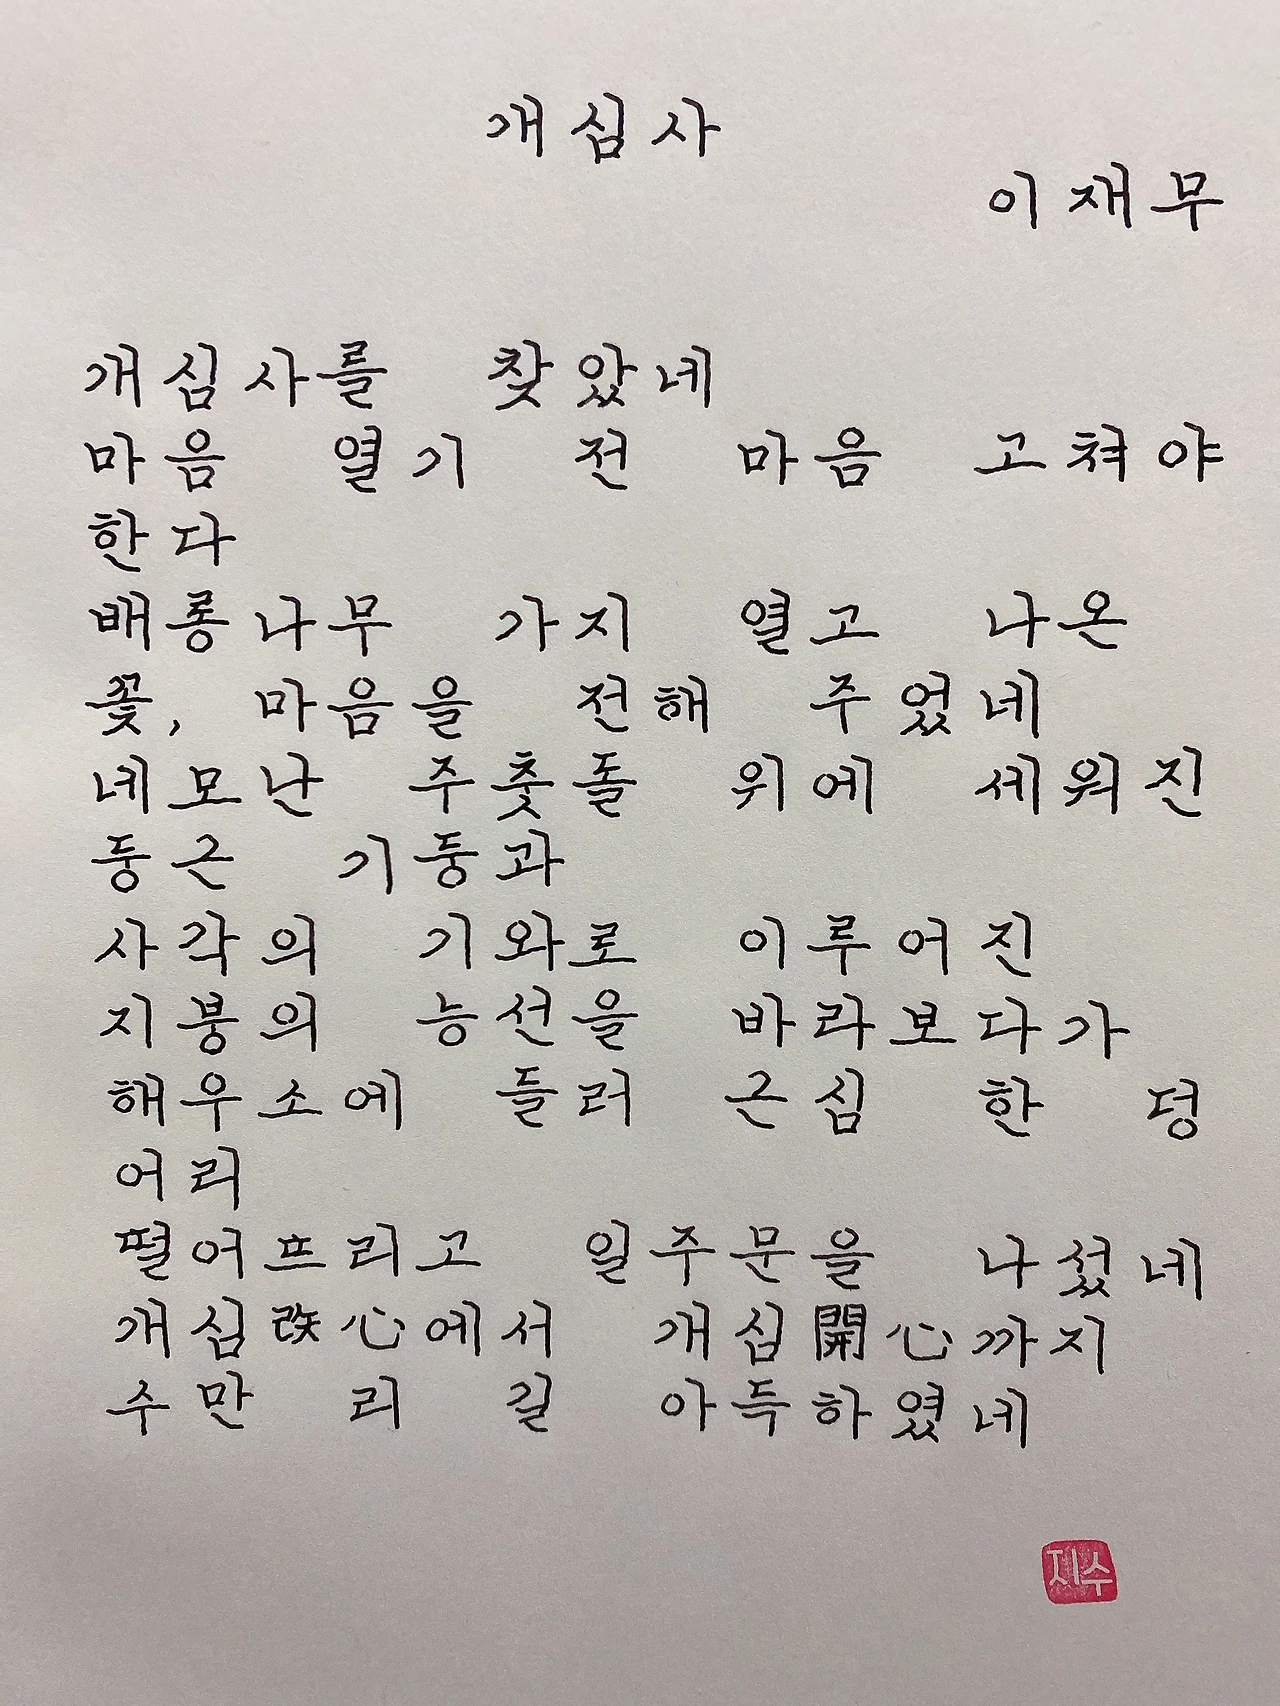 개심사
이재무
개심사를 찾았네
마음 열기 전 마음 고쳐야
한다
배롱나무 가지 열고 나온
꽃, 마음을 전해 주었네
네모난 주춧돌 위에 세워진
둥근 기둥과
사각의 기와로 이루어진
지붕의 능선을 바라보다가
해우소에 들러 근심 한 덩
어리
떨어뜨리고 일주문을 나섰네
개심改心에서 개심開心까지
수만 리 길 아득하였네
지수